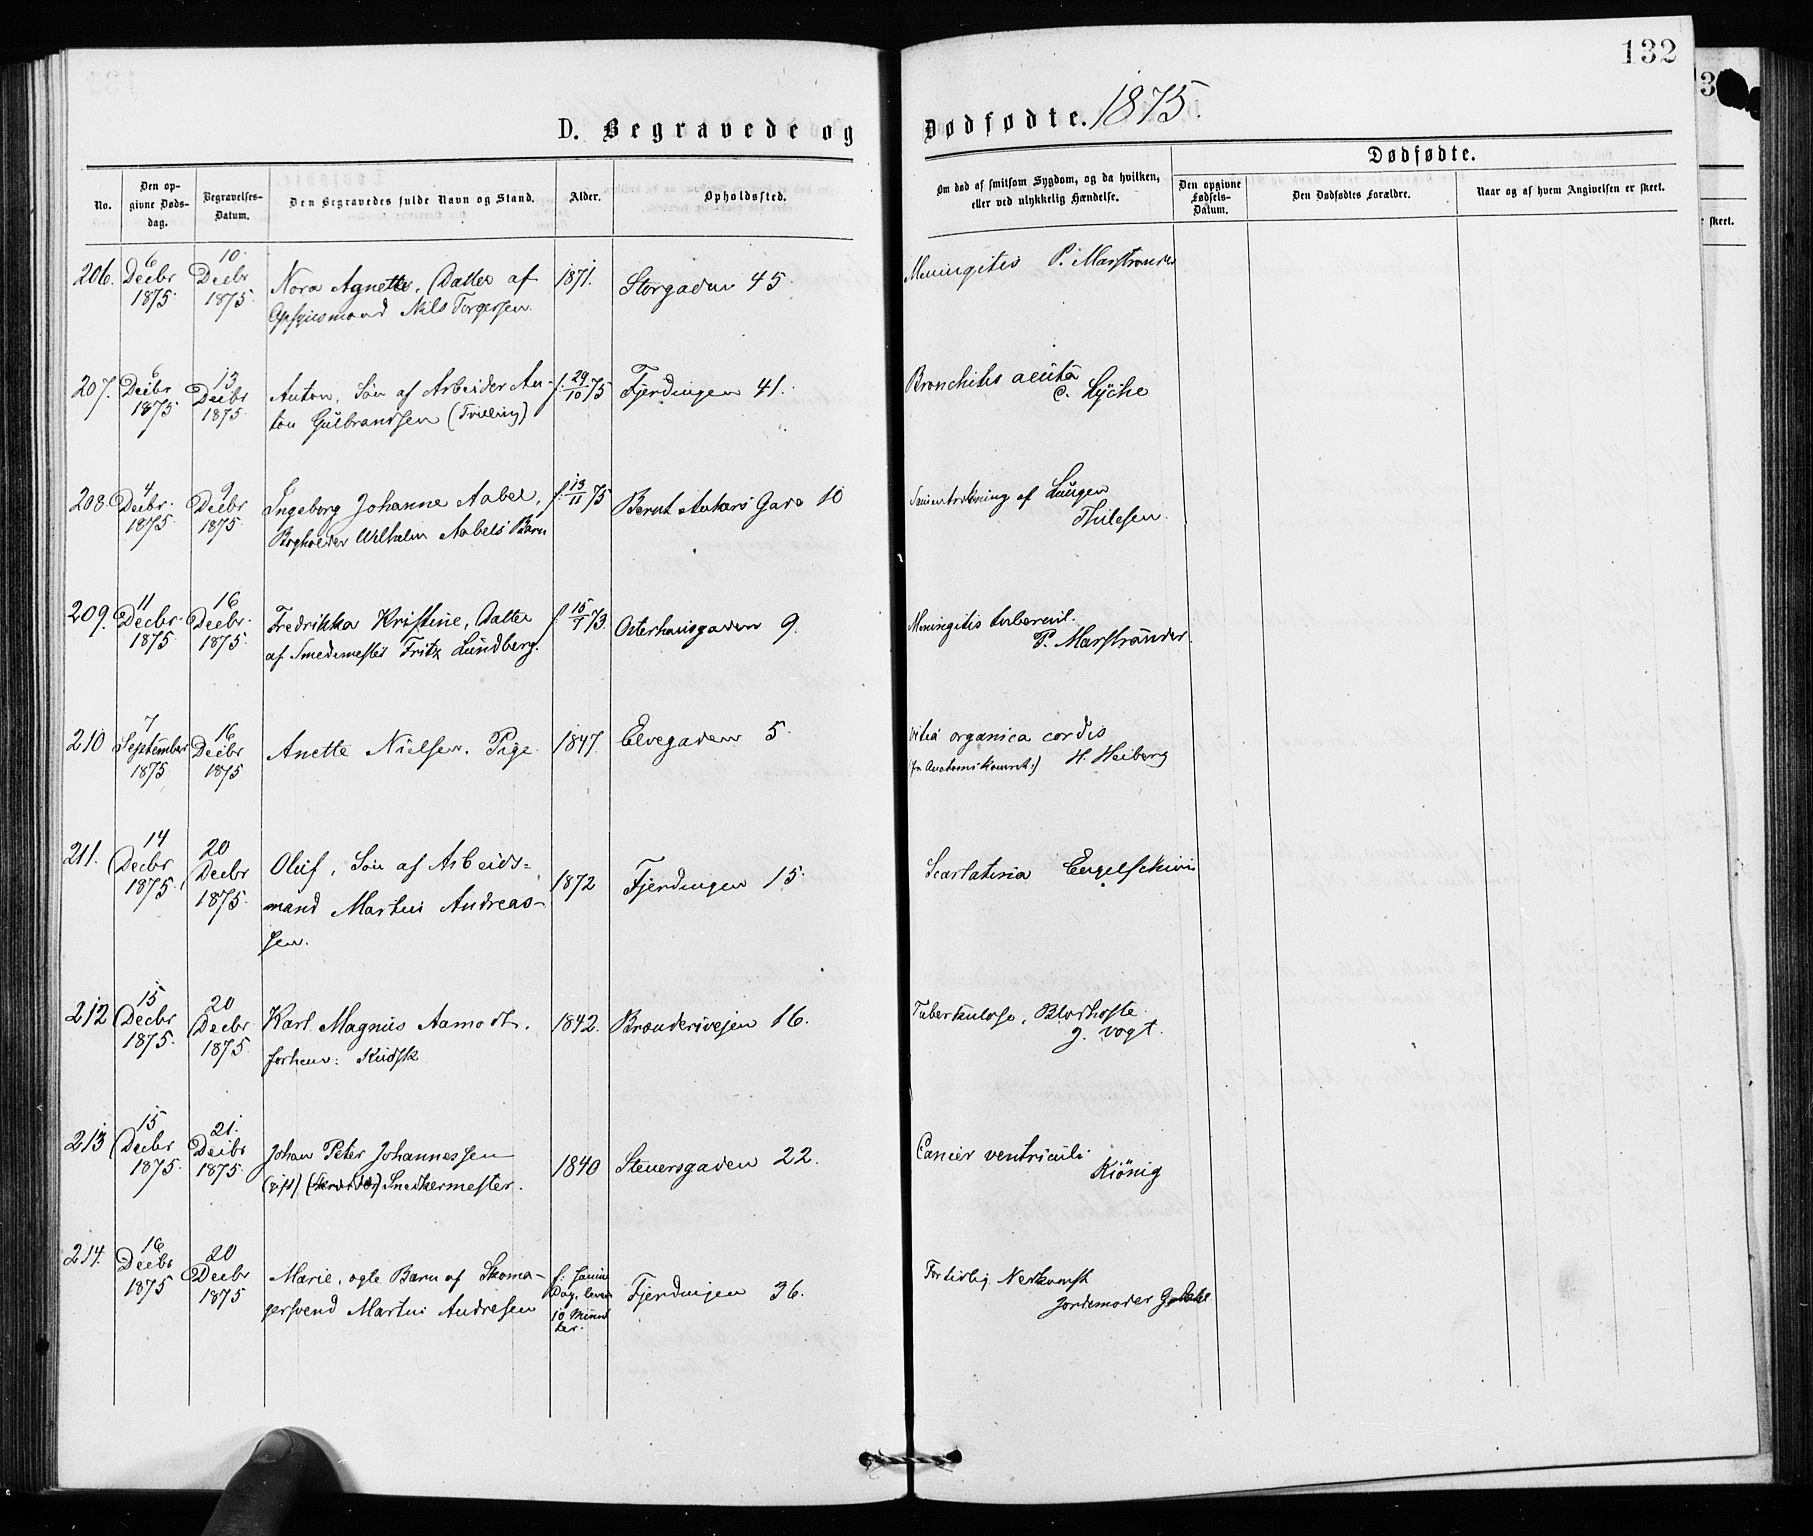 132
D. Begravede og Dødfødte. 1875.
No.
Den opgivne Dødsdag.
Begravelses-Datum.
Den Begravedes fulde Navn og Stand.
Alder.
Opholdssted.
Om død af smitsom Sygdom, og da hvilken, eller ved ulykkelig Hændelse.
Dødfødte.
Den opgivne Fødsels-Datum.
Den Dødfødtes Forældre.
Naar og af hvem Angivelsen er skeet.
206. 6 Decbr 1875. 10. Decbr 1875. Nora Agnette, Datter af 1871. Storgaden 45 Meningitis P. Marstrander
Opsynsmand Nils Torgersen.
207. 6 Decbr 1875 13 Decbr 1875. Anton, Søn af Arbeider An- f. 29/10 75 Fjerdingen 41. Bronchitis acuta
ton Gulbrandsen (Tvilling) C. Lyche
208. 4 Decbr. 1875. 9 Decbr 1875. Ingeborg Johanne Aabel, f. 13/11 75 Bernt Ankers Gade 10 af Lungen
Bogholder Wilhelm Aabels Barn Thilesen.
209. 11 Decbr. 1875 16 Decbr. 1875. Fredrikka Kristine, Datter f. 15/1 73. Osterhausgaden 9. Meningitis tubercul.
af Smedemester Fritz Lundberg. P. Marstrander.
210 7 September 1875. 16 Decbr 1875 Anette Nielsen, Pige. 1847. Elvegaden 5. vitia organica cordis
H. Heiberg
211. 14 Decbr 1875. 20 Decbr 1875. Oluf, Søn af Arbeids- 1872 Fjerdingen 15. Scarlatina Engelschiøn
mand Martin Andreas-
sen.
212 15 Decbr 1875. 20 Decbr. 1875. Karl Magnus Aamodt, 1842. Brænderivejen 16. Tuberkulose, Blodhoste.
forhenv: Kudsk J. Vogt.
213 15 Decbr 1875. 21. Decbr 1875. Johan Peter Johannessen 1840 Stenersgaden 22. Cancer ventriculi.
(gift) Snedkermester. Kiönig
214. 16 Decbr 1875 20 Decbr 1875 Marie, ægte Barn af Skoma- f. samme Dag, leven 10 Minutter. Fjerdingen 36. Fortidlig Nedkomst
gersvend Martin Andresen Jordemoder G. Dahl
3
skeet.